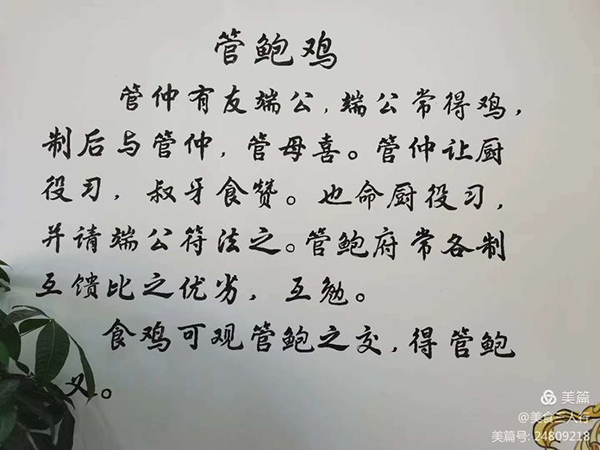 管鲍鸡
管仲有友端公，端公常得鸡，
制后与管仲，管母喜。管仲让厨
役习，叔牙食赞。也命厨役习，
并请端公符法之。管鲍府常各制
互馈比之优劣，互勉。
食鸡可观管鲍之交，得管鲍
义。
美篇
@美食三人行
美篇号: 24809218